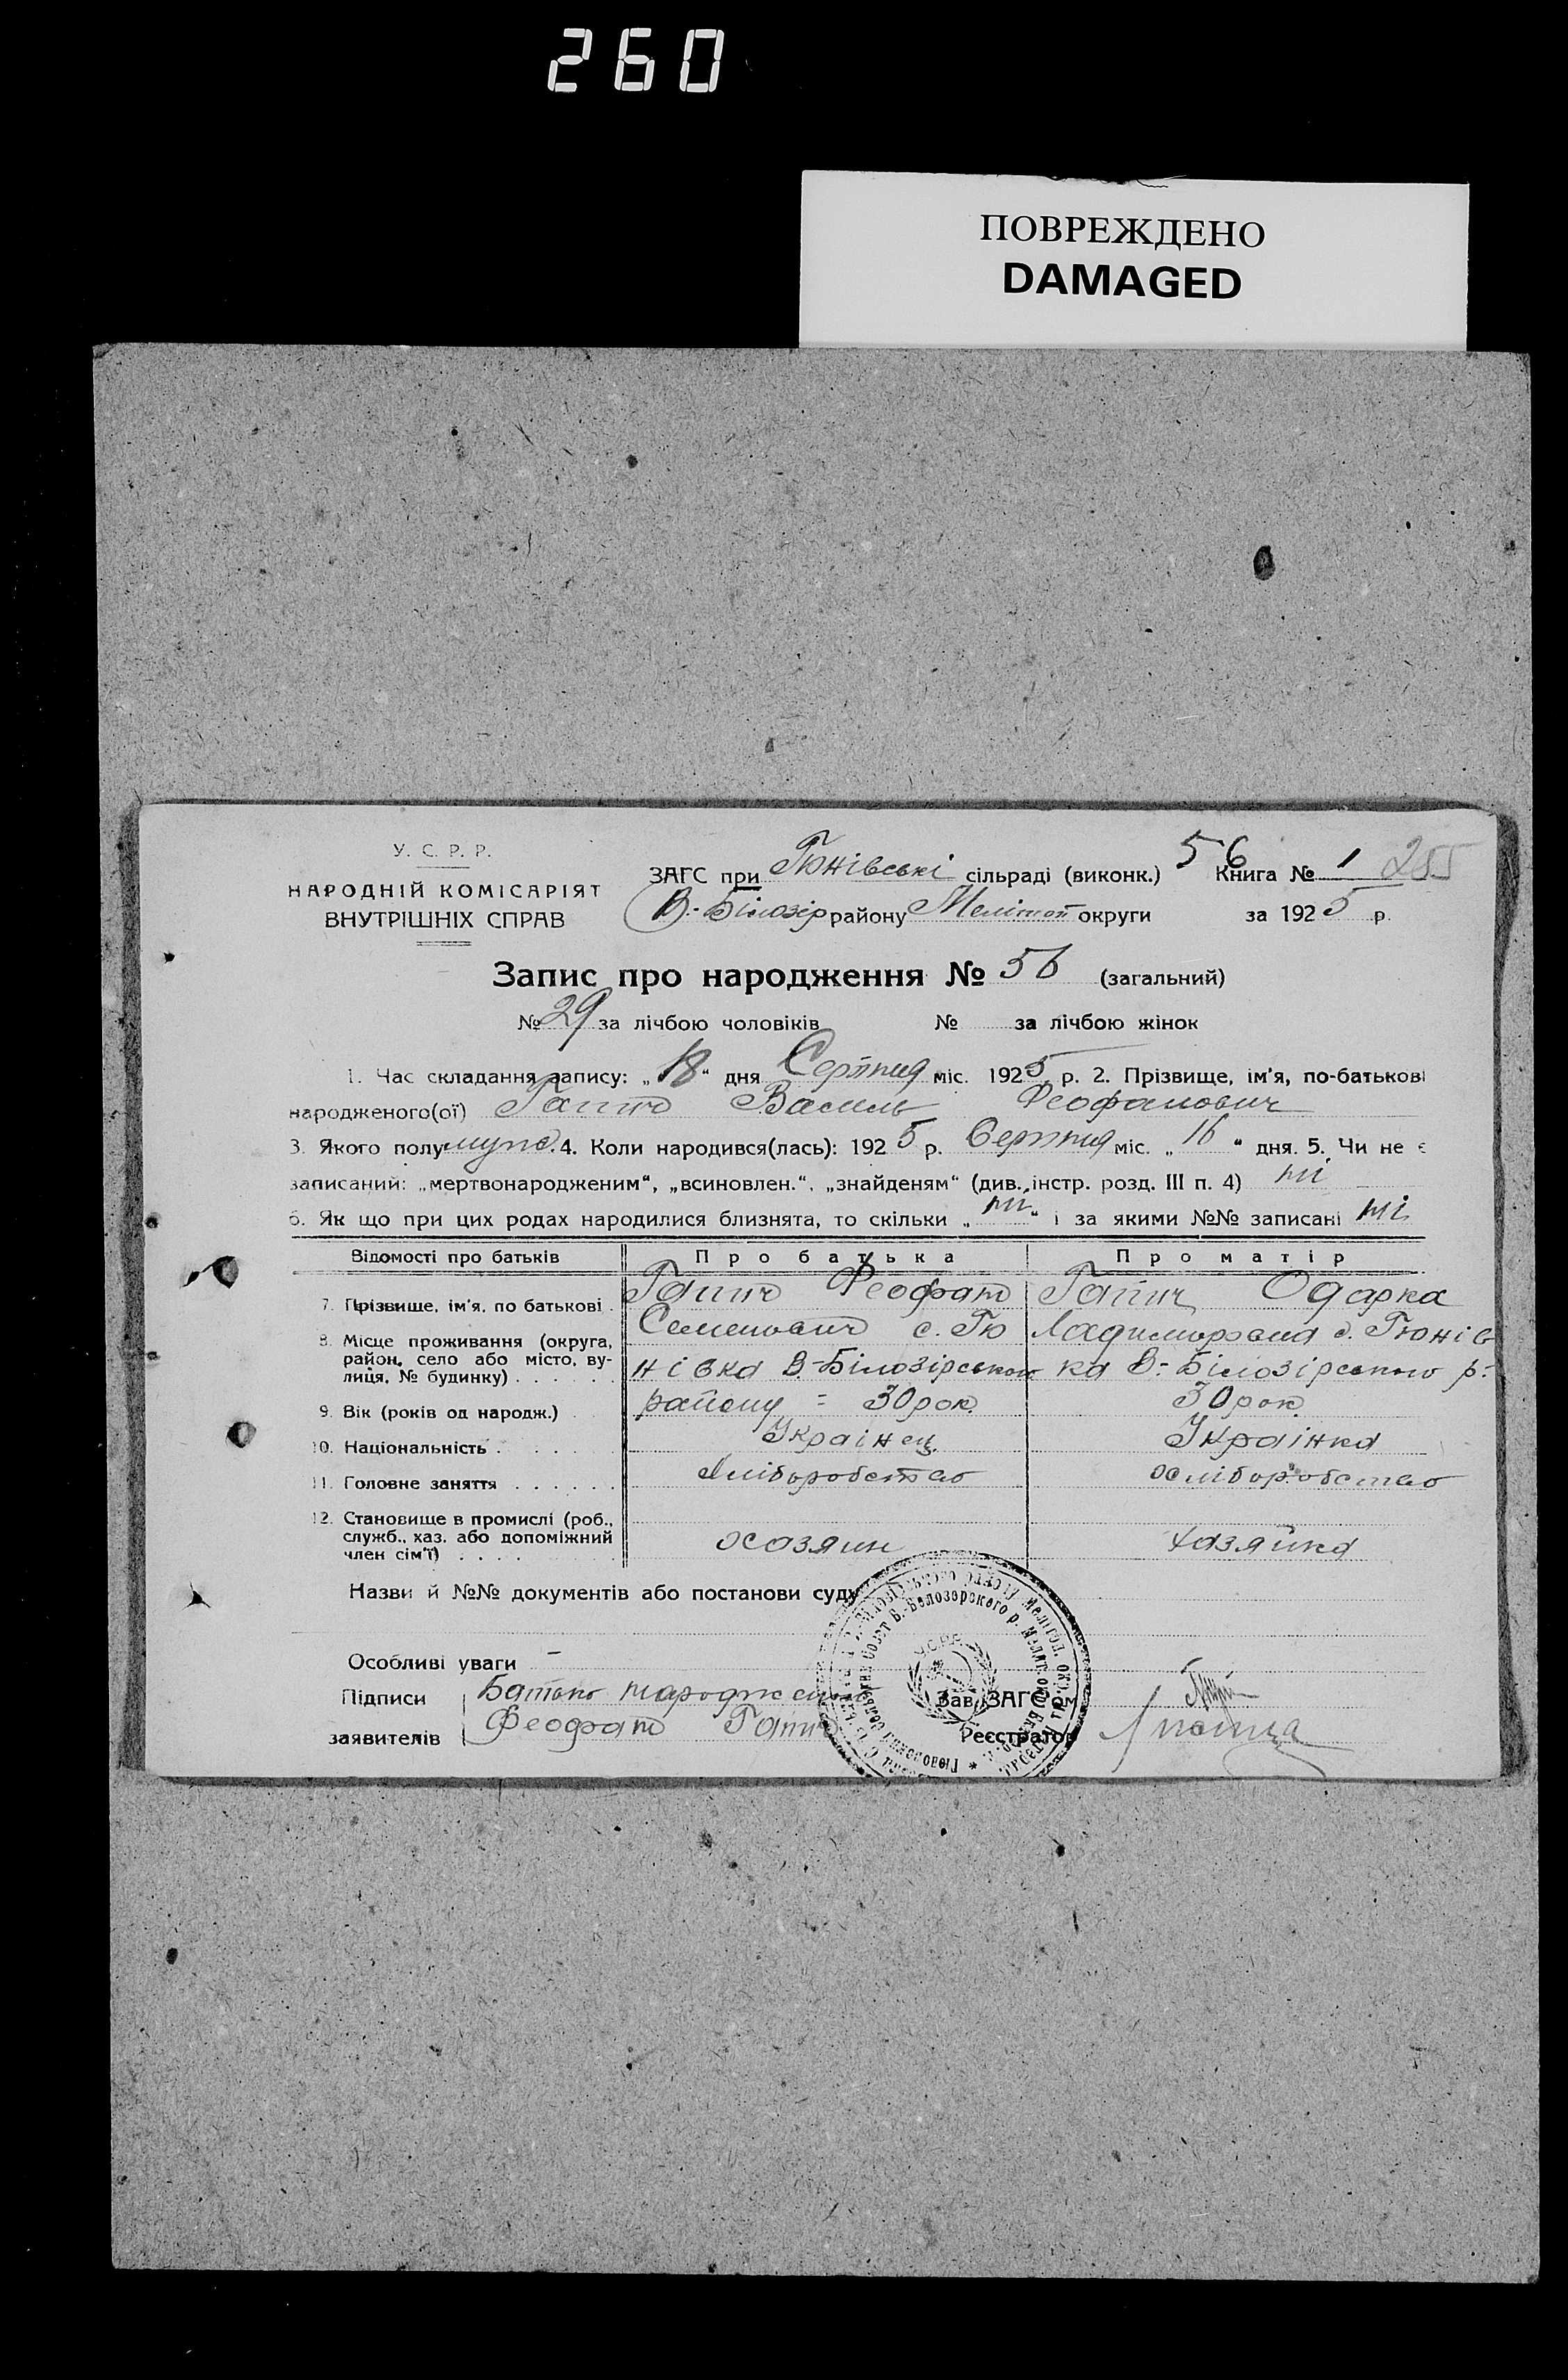 260
ПОВРЕЖДЕНО
DAMAGED
У. С. Р. Р.
НАРОДНІЙ КОМІСАРІЯТ
ВНУТРІШНІХ СПРАВ
ЗАГС при Гюнівські сільраді (виконк.) 56 Книга № 1 255
В.-Білозір району Меліт округи за 1925 р.
Запис про народження № 56 (загальний)
№ 29 за лічбою чоловіків № за лічбою жінок
1. Час складання запису: „18“ дня Серпня міс. 1925 р. 2. Прізвище, ім'я, по-батькові
народженого(ої) Василь Феофанович
3. Якого полу муж. 4. Коли народився(лась): 1925 р. Серпня міс. „16“ дня. 5. Чи не є
записаний: „мертвонародженим“, „всиновлен.“, „знайденям“ (див. інстр. розд. III п. 4) ні
6. Як що при цих родах народилися близнята, то скільки „ні“ і за якими №№ записані ні
Відомості про батьків Про батька Про матір
7. Прізвище, ім'я, по батькові Феофан Одарка
Семенович с. Гю с. Гюнів
8. Місце проживання (округа, район, село або місто, ву-
лиця, № будинку) нівка В-Білозірського ка В-Білозірського р-
9. Вік (років од народж.) району = 30 рок. 30 рок.
10. Національність Украінец Украінка
11. Головне заняття хліборобство хліборобство
12. Становище в промислі (роб.,
служб., хаз. або допоміжний
член сім'ї) хозяин хазяйка
Назви й №№ документів або постанови суду
Особливі уваги –
Підписи Батько
заявителів Феофан
Зав. ЗАГС'ом
Реєстратор